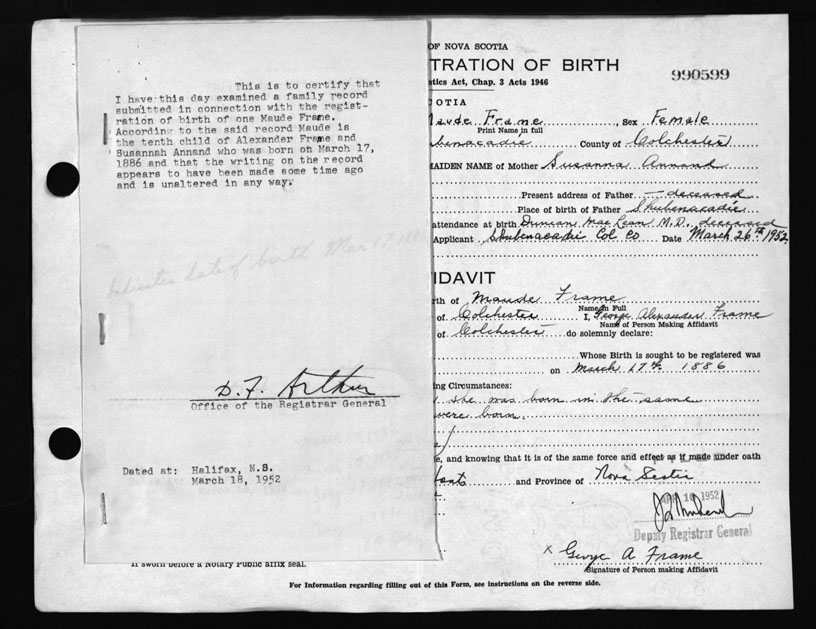 This is to certify that
I have this day examined a family record
submitted in connection with the regist-
ration of birth of one Maude Frame.
According to the said record Maude is
the tenth child of Alexander Frame and
Susannah Annand who was born on March 17,
1886 and that the writing on the record
appears to have been made some time ago
and is unaltered in any way.
Indicates date of birth Mar 17 1886
D. F. Arthur
Office of the Registrar General
Dated at: Halifax, N.S.
March 18, 1952
OF NOVA SCOTIA
TRATION OF BIRTH
990599
stics Act, Chap. 3 Acts 1946
COTIA
Maude Frame, Sex Female
Print Name in full
benacadie County of Colchester
MAIDEN NAME of Mother Susanna Annand
Present address of Father deceased
Place of birth of Father Shubenacadie
attendance at birth Duncan Mac Lean M.D., deceased
Applicant Shubenacadie Col Co Date March 26th 1952
IDAVIT
rth of Maude Frame
Name in Full
of Colchester I, George Alexander Frame
Name of Person Making Affidavit
of Colchester do solemnly declare:
Whose Birth is sought to be registered was
on March 17th 1886
ing Circumstances:
she was born in the same
were born.
e, and knowing that it is of the same force and effect as if made under oath
and Province of Nova Scotia
APR 10 1952
Deputy Registrar General
x George A Frame
Signature of Person making Affidavit
If sworn before a Notary Public affix seal.
For Information regarding filling out of this Form, see instructions on the reverse side.